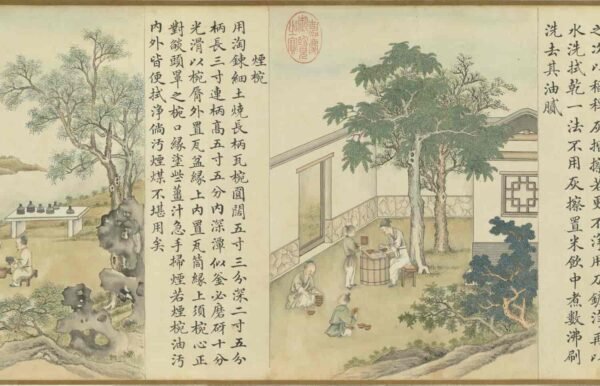 之次以稻稈灰擦若更不淨用刀淨再以
水洗拭乾一法不用灰擦置米飲中煮數沸刷
洗去其油膩
煙椀
用淘鍊細土燒長柄瓦椀圓闊五寸三分深二寸五分
柄長三寸連柄高五寸五分內深潭似釜必磨研十分
光滑以椀脣外置瓦盆緣上內置瓦筒緣上須椀心正
對燄頭罩之椀口緣塗些薑汁急手掃煙若煙椀油汚
內外皆便拭淨倘汚煙煤不堪用矣